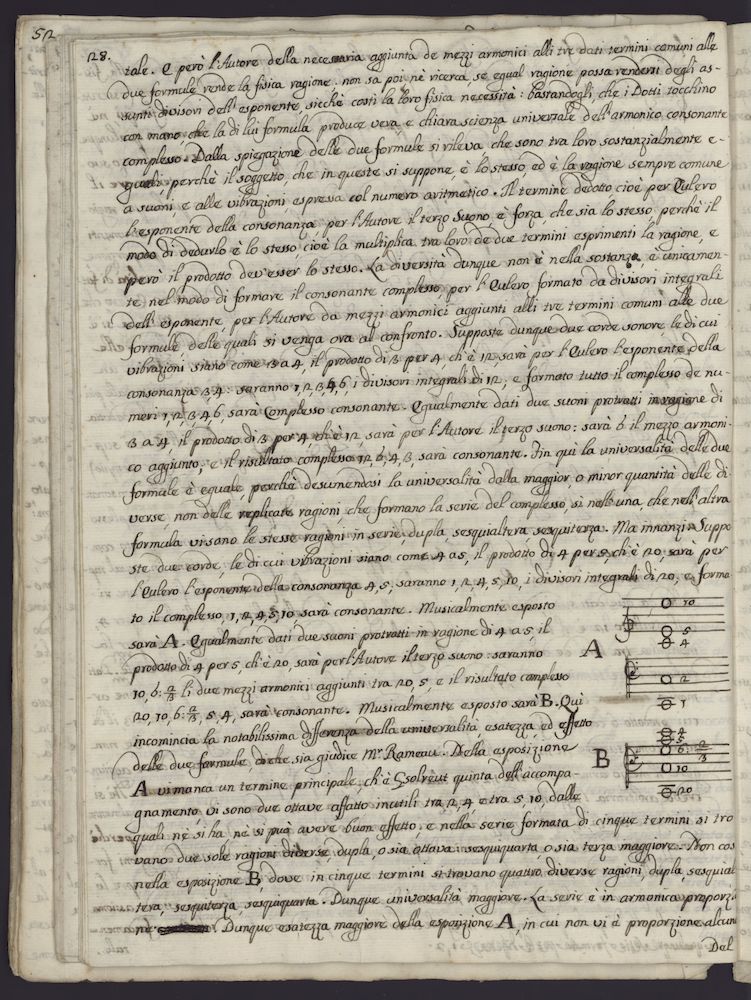 512
128.
tale. E però l'Autore della necessaria aggiunta de mezzi armonici alli tre dati termini comuni alle
due formule rende la fisica ragione, non sa poi nè ricerca, se egual ragione possa rendersi degli as-
sunti divisori dell'esponente, sicchè costi la loro fisica necessità: bastandogli, che i Dotti tocchino
con mano che la di lui formula produce vera, e chiara scienza universale dell'armonico consonante
complesso. Dalla spiegazione delle due formule si rileva che sono tra loro sostanzialmente e-
guali, perchè il soggetto, che in queste si suppone, è lo stesso, ed è la ragione sempre comune
a suoni, e alle vibrazioni, espressa col numero aritmetico. Il termine dedotto cioè per l'Eulero
l'esponente della consonanza, per l'Autore il terzo suono, è forza, che sia lo stesso, perchè il
modo di dedurlo è lo stesso, cioè la multiplica tra loro de due termini esprimenti la ragione, e
però il prodotto dev'esser lo stesso. La diversità dunque non è nella sostanza, è unicamen-
te nel modo di formare il consonante complesso, per l'Eulero formato da divisori integrali
dell'esponente, per l'Autore da mezzi armonici aggiunti alli tre termini comuni alle due
formule, delle quali si venga ora al confronto. Supposte dunque due corde sonore le di cui
vibrazioni siano come 3 a 4, il prodotto di 3 per 4, ch'è 12, sarà per l'Eulero l'esponente della
consonanza 3,4: saranno 1,2,3,4,6, i divisori integrali di 12; e formato tutto il complesso de nu-
meri 1,2,3,4,6, sarà Complesso consonante. Egualmente dati due suoni protratti in ragione di
3 a 4, il prodotto di 3 per 4, ch'è 12, sarà per l'Autore il terzo suono: sarà 6 il mezzo armoni-
co aggiunto, e il risultato complesso 12, 6, 4, 3, sarà consonante. Fin quì la universalità delle due
formule è eguale, perchè desumendosi la universalità dalla maggior, o minor quantità delle di
verse, non delle replicate ragioni, che formano la serie del complesso, si nell'una, che nell'altra
formula vi sano le stesse ragioni in serie, dupla, sesquialtera, sesquiterza. Ma innanzi. Suppo
ste due corde, le di cui vibrazioni siano come 4 a 5, il prodotto di 4 per 5, ch'è 20, sarà per
l'Eulero l'esponente della consonanza 4,5, saranno 1, 2, 4, 5, 10, i divisori integrali di 20, e forma
to il complesso, 1, 2, 4, 5, 10 sarà consonante. Musicalmente esposto
sarà A. Egualmente dati due suoni protratti in ragione di 4 a 5, il
prodotto di 4 per 5, ch'è 20, sarà per l'Autore il terzo suono: saranno
10, 6:2/3 li due mezzi armonici aggiunti tra 20, 5, e il risultato complesso
20, 10, 6:2/3, 5, 4, sarà consonante. Musicalmente esposto sarà B. Qui
incomincia la notabilissima differenza della universalità, esatezza, ed effetto
delle due formule, di che sia giudice Mr. Rameau. Della esposizione
A vi manca un termine principale, ch'è Gsolreut quinta dell'accompa-
gnamento, vi sono due ottave affatto inutili tra 2, 4, e tra 5, 10, dalle
quali nè si ha, nè si può avere buon effetto, e nella serie formata di cinque termini si tro
vano due sole ragioni diverse, dupla, o sia ottava: sesquiquarta, o sia terza maggiore. Non cos
nella esposizione B, dove in cinque termini si trovano quattro diverse ragioni, dupla, sesquial
tera, sesquiterza, sesquiquarta. Dunque universalità maggiore. La serie è in armonica proporzi
ne. Dunque esatezza maggiore della esposizione A, in cui non vi è proporzione alcuna
Del
A
10
5
4
2
1
B
4
5
6:2/3
10
20